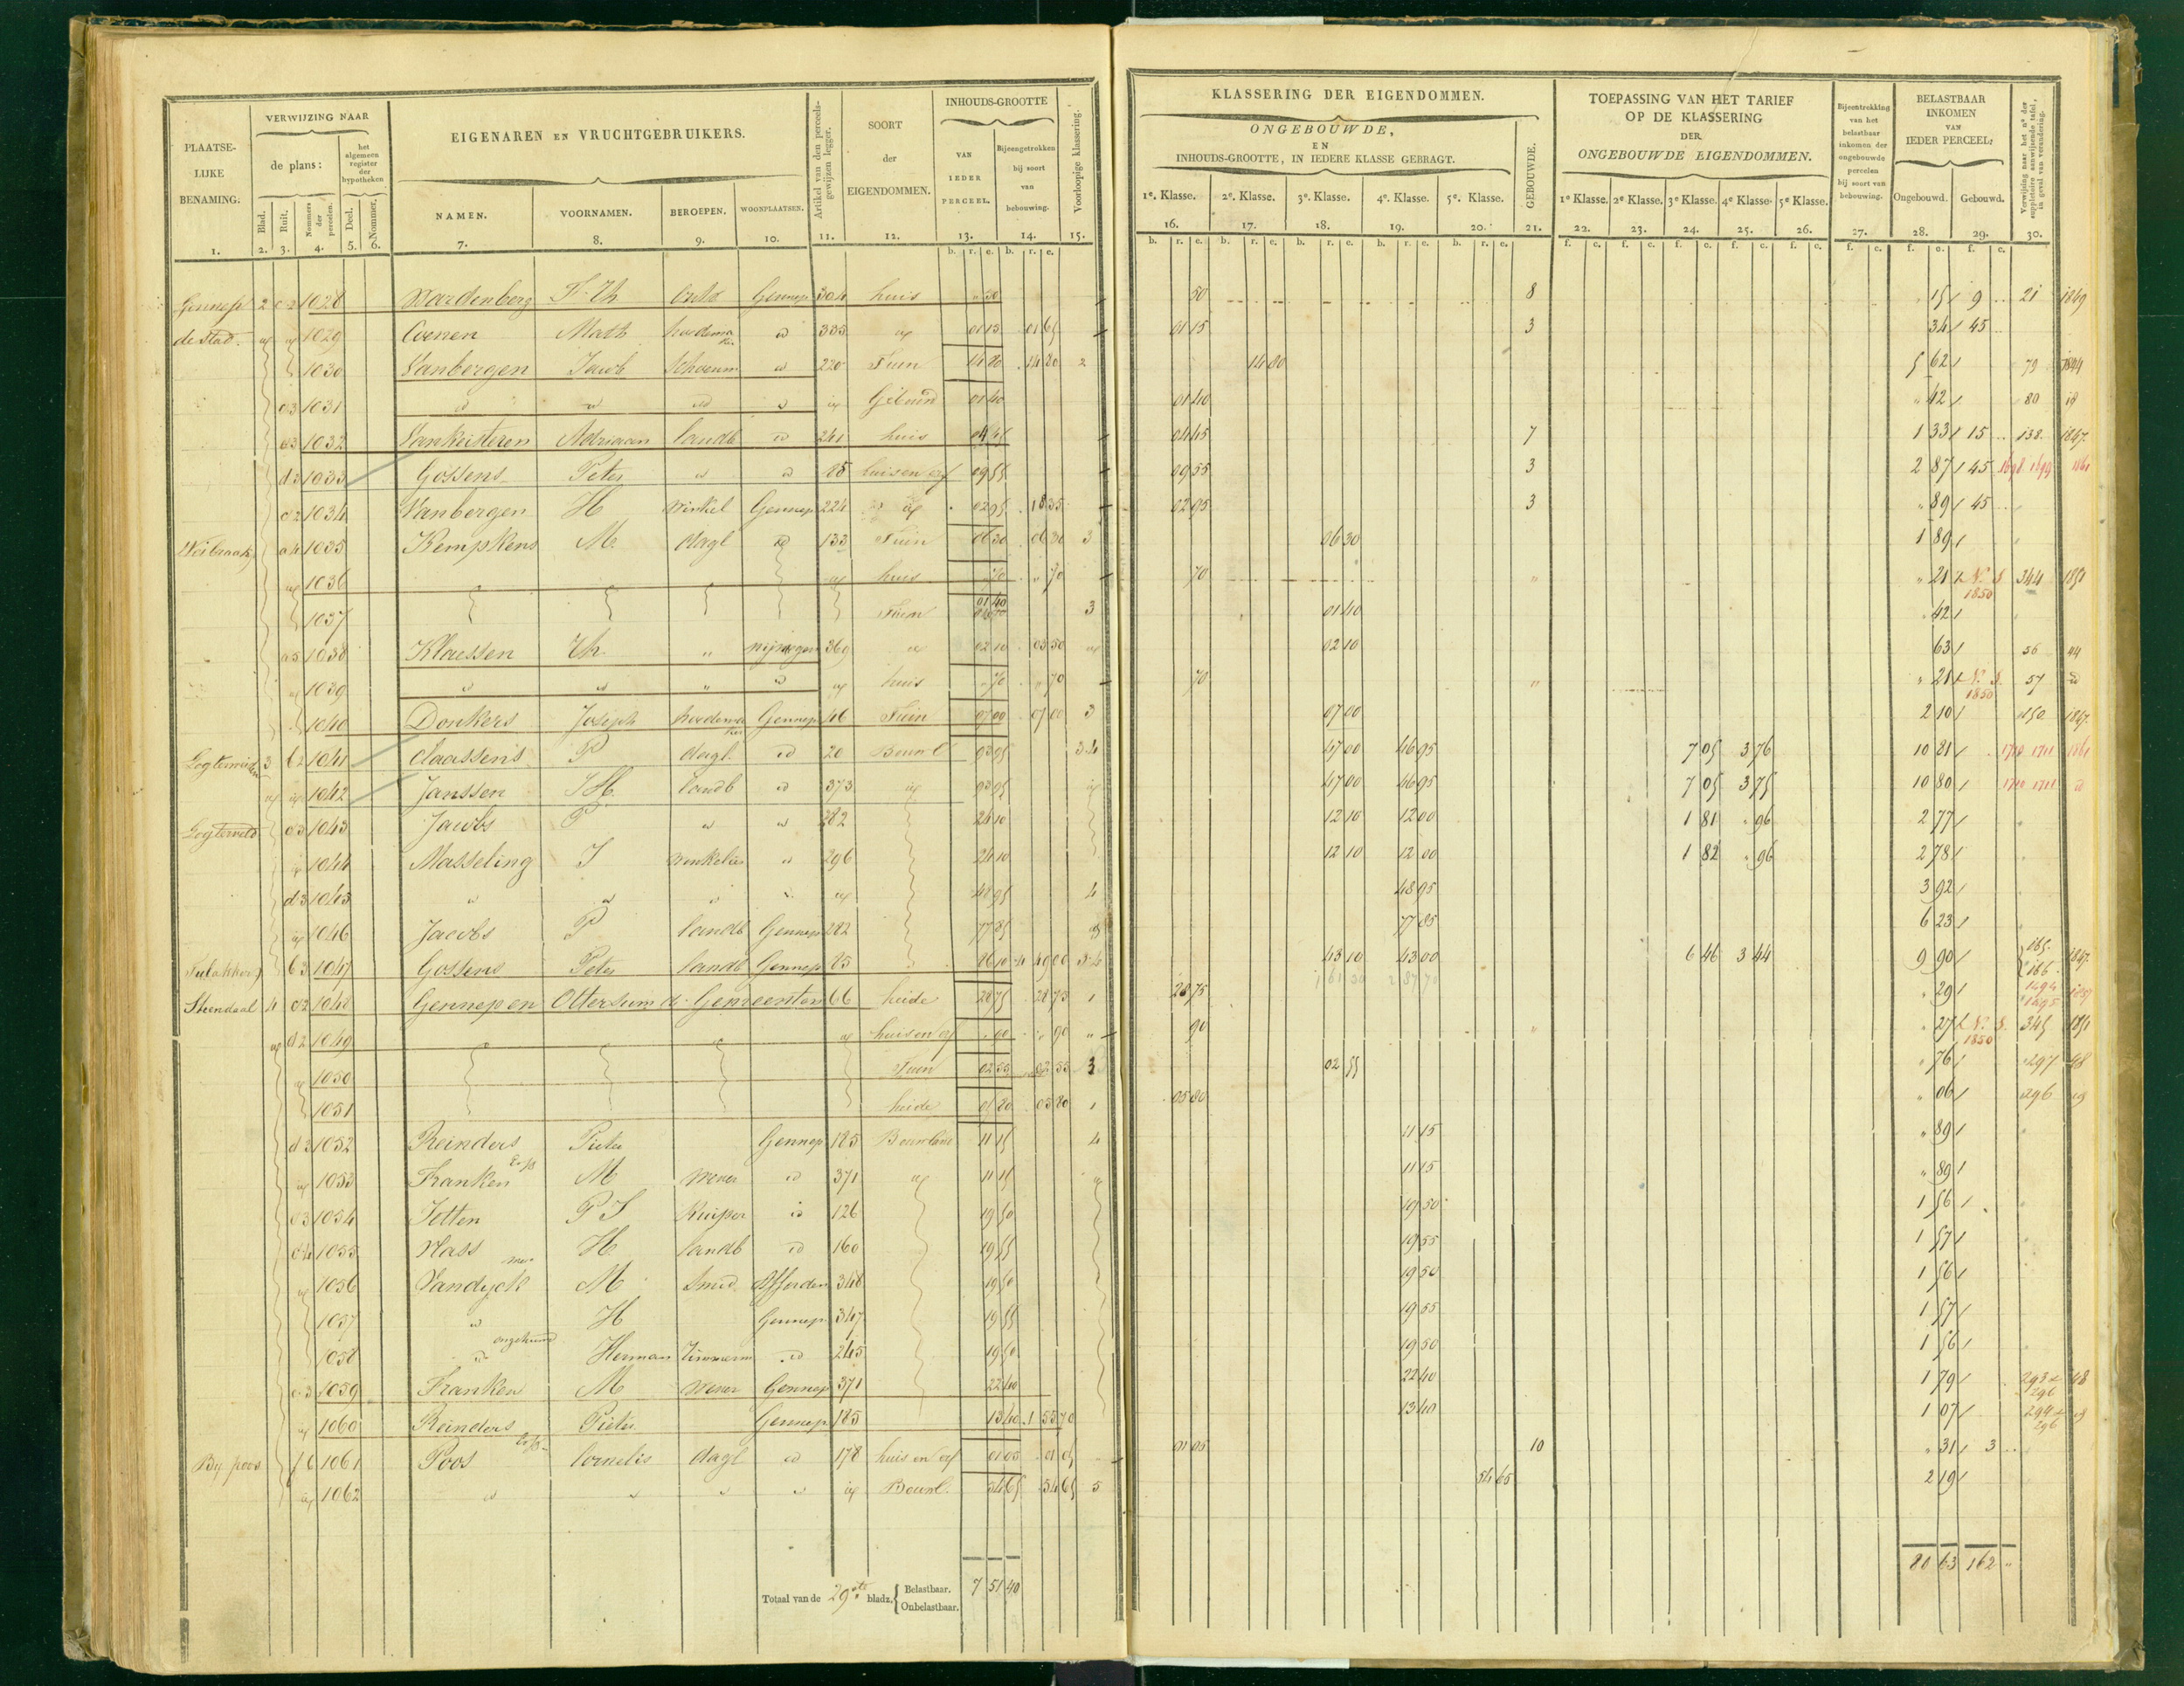 PLAATSE-
LIJKE
BENAMING.
VERWIJZING NAAR
de plans:
het
algemeen
register
der
hypotheken
Blad.
Ruit.
Nommers
der
perceelen.
Deel.
Nommer.
EIGENAREN EN VRUCHTGEBRUIKERS.
NAMEN.
VOORNAMEN.
BEROEPEN.
WOONPLAATSEN.
Artikel van den perceels-
gewijzen legger.
SOORT
der
EIGENDOMMEN.
INHOUDS-GROOTTE
VAN
IEDER
PERCEEL.
Bijeengetrokken
bij soort
van
bebouwing.
Voorloopige klassering.
1. 2. 3. 4. 5. 6. 7. 8. 9. 10. 11. 12. 13. 14. 15.
b. r. e. b. r. e.
KLASSERING DER EIGENDOMMEN.
ONGEBOUWDE,
EN
INHOUDS-GROOTTE, IN IEDERE KLASSE GEBRAGT.
1e. Klasse. 2e. Klasse. 3e. Klasse. 4e. Klasse. 5e. Klasse.
GEBOUWDE.
TOEPASSING VAN HET TARIEF
OP DE KLASSERING
DER
ONGEBOUWDE EIGENDOMMEN.
1e Klasse. 2e Klasse. 3e Klasse. 4e Klasse. 5e Klasse.
Bijeentrekking
van het
belastbaar
inkomen der
ongebouwde
perceelen
bij soort van
bebouwing.
BELASTBAAR
INKOMEN
VAN
IEDER PERCEEL,
Ongebouwd. Gebouwd.
Verwijzing naar het no der
suppletoire aanwijzende tafel,
in geval van verandering.
16. 17. 18. 19. 20. 21. 22. 23. 24. 25. 26. 27. 28. 29. 30.
Gennep 2 c2 1028 F. Th Gennep 304 huis 50 50 8 15 9 21 1869
de Stad 1029 Coenen Math id 333 01 15 01 65 01 15 3 34 45
1030 Vanbergen Jacob Schoenm id 220 Tuin 14 80 14 80 2 14 80 5 62 79 1844
c3 1031 id id id id 01 40 01 40 42 80 id
1032 Adriaan landb id 241 huis 04 45 04 45 7 1 33 15 138 1847
d3 1033 Gossens Peter id id 85 huis en erf 09 55 09 55 3 2 87 45 1698 1699 1861
c2 1034 Vanbergen H winkel Gennep 224 02 95 18 35 02 95 3 89 45
a4 1035 Kempkens M. dagl id 133 Tuin 06 30 06 30 3 06 30 1 89
1036 huis 70 70 70 21 No S. 1850 344 1851
1037 Tuin 01 40 3 01 40 42
a5 1038 Klaessen Th. nijmegen 369 02 10 03 50 02 10 63 56 44
1039 id id id huis 70 70 70 21 No S. 1850 57 id
1040 Donkers Joseph hoedemaker Gennep 46 Tuin 07 00 07 00 3 07 00 2 10 150 1847
3 b2 1041 Claassens P dagl. id 20 Bouwl 93 95 3.4 47 00 46 95 7 05 3 76 10 81 1710 1711 1861
1042 Janssen landb id 373 93 95 47 00 46 95 7 05 3 75 10 80 1710 1711 id
Logterveld 1043 Jacobs P id id 282 24 10 12 10 12 00 1 81 96 2 77
1044 Masseling J winkelier id 296 24 10 12 10 12 00 1 82 96 2 78
d3 1045 48 95 4 48 95 3 92
1046 Jacobs P landb Gennep 282 77 85 77 85 6 23
b3 1047 Gossens Peter landb Gennep 85 86 10 3.4 43 10 43 00 6 46 3 44 9 90 165. 166 1847
4 1048 Gennep en Ottersum de Gemeenten 66 heide 28 75 28 75 1 28 75 29 1494 1495 1857
d2 1049 huis en erf 90 90 90 27 No S. 1850 345 1851
1050 Tuin 02 55 02 55 3 02 55 76 297 48
1051 heide 05 80 05 80 1 05 80 06 296
d3 1052 Reinders Pieter Gennep 185 Bouwland 11 15 4 11 15 89
1053 Franken M wever id 371 11 15 11 15 89
1054 Jetten P J Kuiper id 126 19 50 19 50 1 56
1055 H landb id 160 19 55 19 55 1 57
1056 Vandyck M Smid Afferden 348 19 50 19 50 1 56
1057 id H Gennep 347 19 55 19 55 1 57
1058 Herman Timmerm id 245 19 50 19 50 1 56
1059 Franken M wever Gennep 371 22 40 22 40 1 79 293 296 48
1060 Reinders Pieter Gennep 185 13 40 1 55 70 13 40 1 07 294 296
By poos 1061 Poos Cornelis dagl id 178 huis en erf 01 05 01 05 01 05 10 31 3
1062 id Bouwl. 54 65 54 65 5 54 65 2 19
Totaal van de 29ste bladz. Belastbaar. 7 51 40
Onbelastbaar.
80 63 162